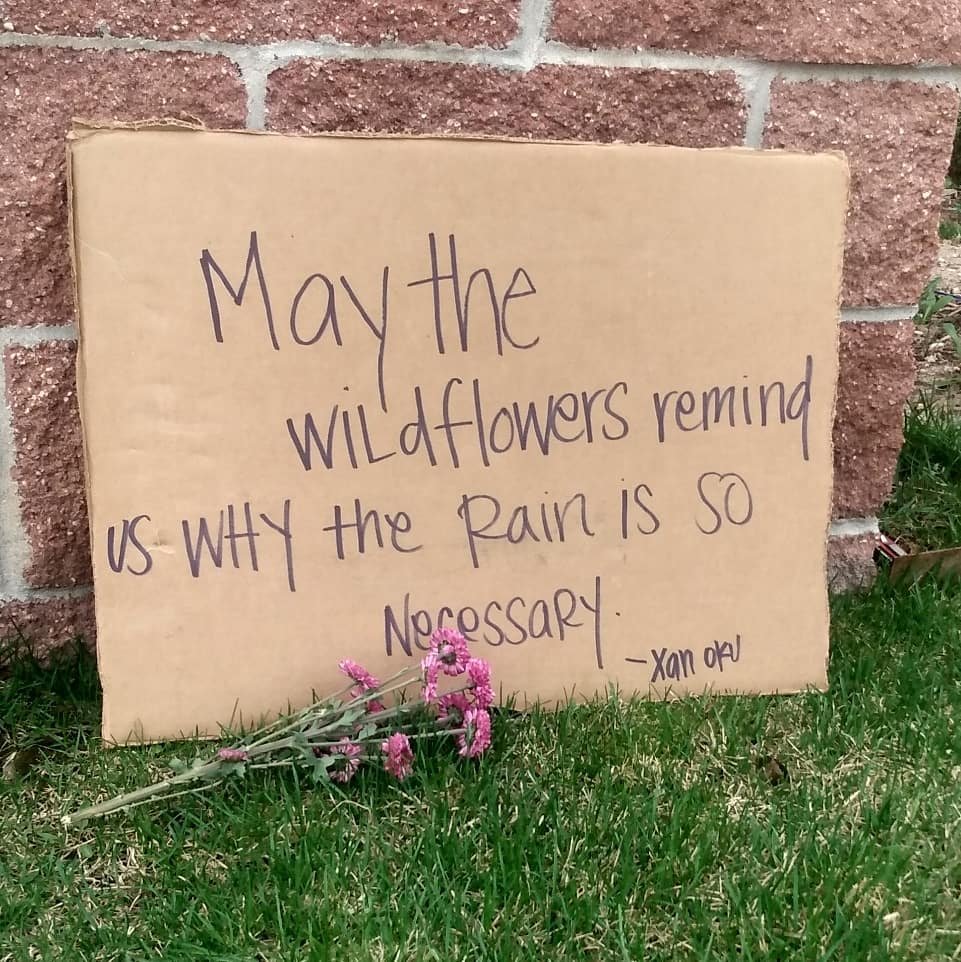 May the
WiLdflowers remind
us WHY the Rain is so
NecessaRY.
-Xan OKU